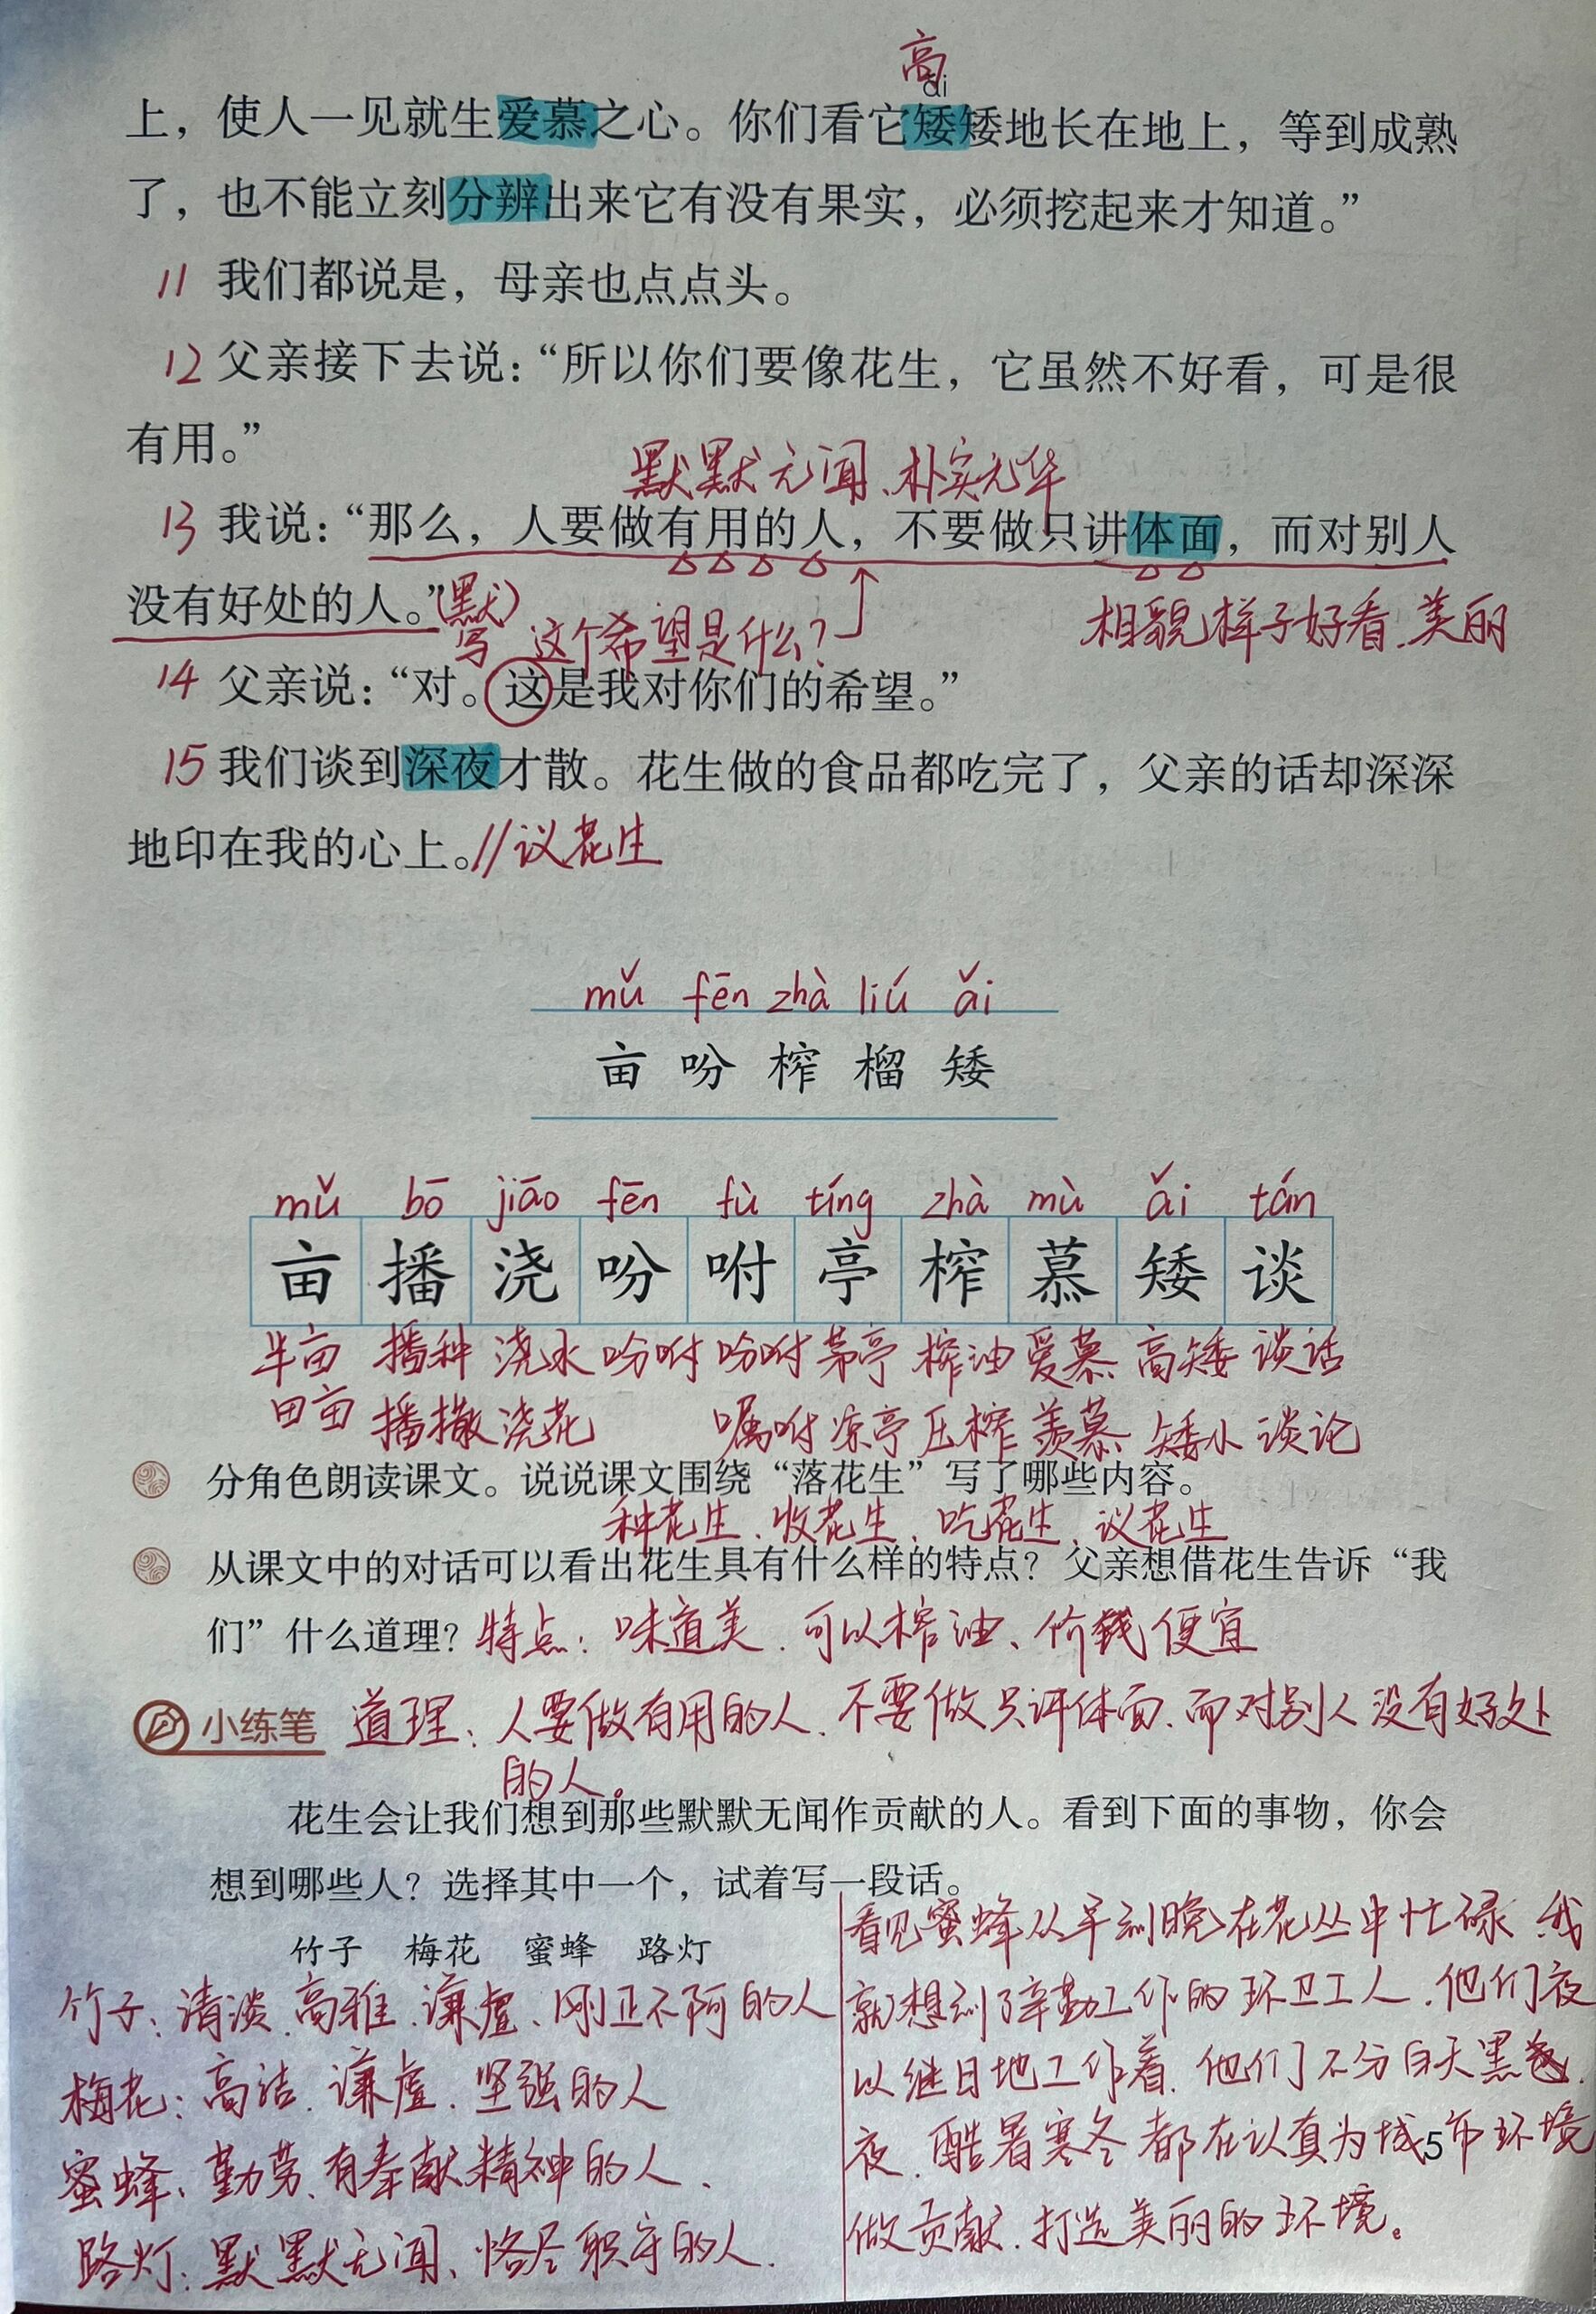 高
ǎi
上，使人一见就生爱慕之心。你们看它矮矮地长在地上，等到成熟
了，也不能立刻分辨出来它有没有果实，必须挖起来才知道。”
11 我们都说是，母亲也点点头。
12 父亲接下去说：“所以你们要像花生，它虽然不好看，可是很
有用。”
默默无闻、朴实无华
13 我说：“那么，人要做有用的人，不要做只讲体面，而对别人
没有好处的人。”(默写)
这个希望是什么？
相貌样子好看、美丽
14 父亲说：“对。这是我对你们的希望。”
15 我们谈到深夜才散。花生做的食品都吃完了，父亲的话却深深
地印在我的心上。//议花生
mǔ fēn zhà liú ǎi
亩 吩 榨 榴 矮
mǔ bō jiāo fēn fù tíng zhà mù ǎi tán
亩 播 浇 吩 咐 亭 榨 慕 矮 谈
半亩 播种 浇水 吩咐 吩咐 茅亭 榨油 爱慕 高矮 谈话
田亩 播撒 浇花 嘱咐 凉亭 压榨 羡慕 矮小 谈论
分角色朗读课文。说说课文围绕“落花生”写了哪些内容。
种花生、收花生、吃花生、议花生
从课文中的对话可以看出花生具有什么样的特点？父亲想借花生告诉“我
们”什么道理？特点：味道美、可以榨油、价钱便宜
小练笔 道理：人要做有用的人、不要做只讲体面、而对别人没有好处
的人。
花生会让我们想到那些默默无闻作贡献的人。看到下面的事物，你会
想到哪些人？选择其中一个，试着写一段话。
竹子 梅花 蜜蜂 路灯
竹子：清淡、高雅、谦虚、刚正不阿的人
梅花：高洁、谦虚、坚强的人
蜜蜂：勤劳、有奉献精神的人．
路灯：默默无闻、恪尽职守的人．
看见蜜蜂从早到晚在花丛中忙碌，我
就想到了辛勤工作的环卫工人．他们夜
以继日地工作着．他们不分白天黑
夜、酷暑寒冬都在认真为城市环境
做贡献．打造美丽的环境。
5